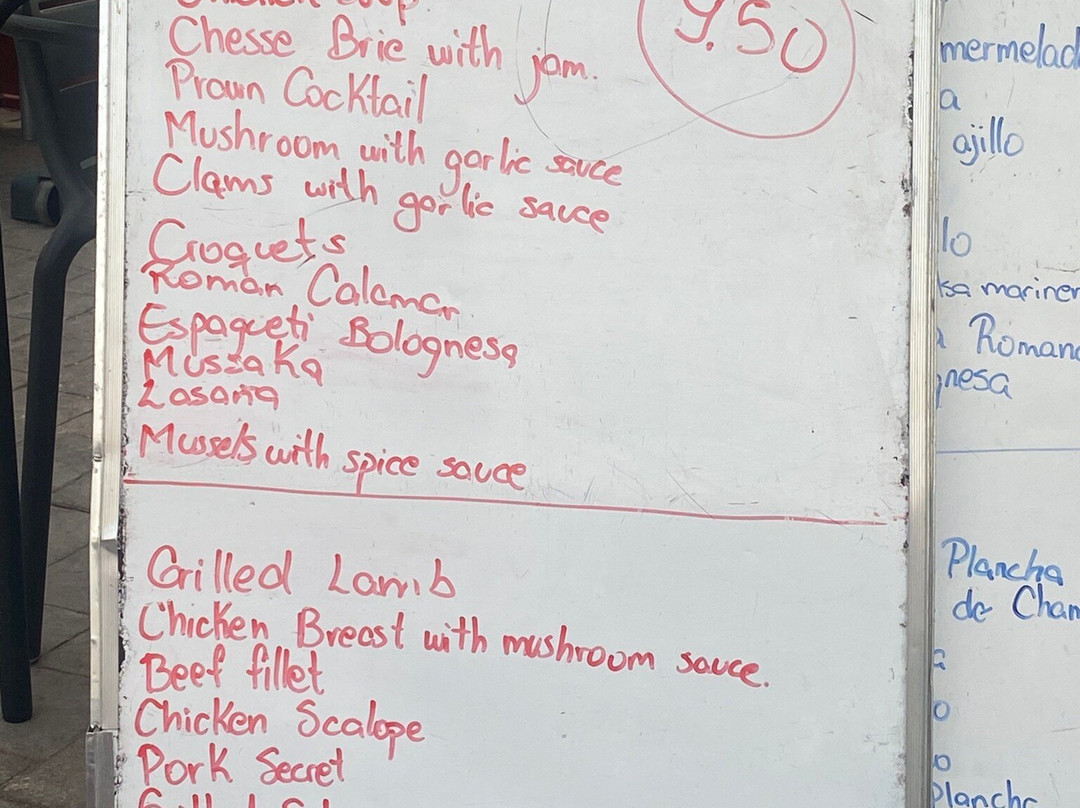 9.50
Chesse Brie with jam.
Prawn Cocktail
Mushroom with garlic sauce
Clams with garlic sauce
Croquets
Roman Calamar
Espagueti Bolognesa
Mussaka
Lasaña
Mussels with spice sauce
Grilled Lamb
Chicken Breast with mushroom sauce.
Beef fillet
Chicken Scalope
Pork Secret
mermelad
a
ajillo
lo
lsa mariner
a Romana
nesa
Plancha
de Cham
a
o
o
Plancha